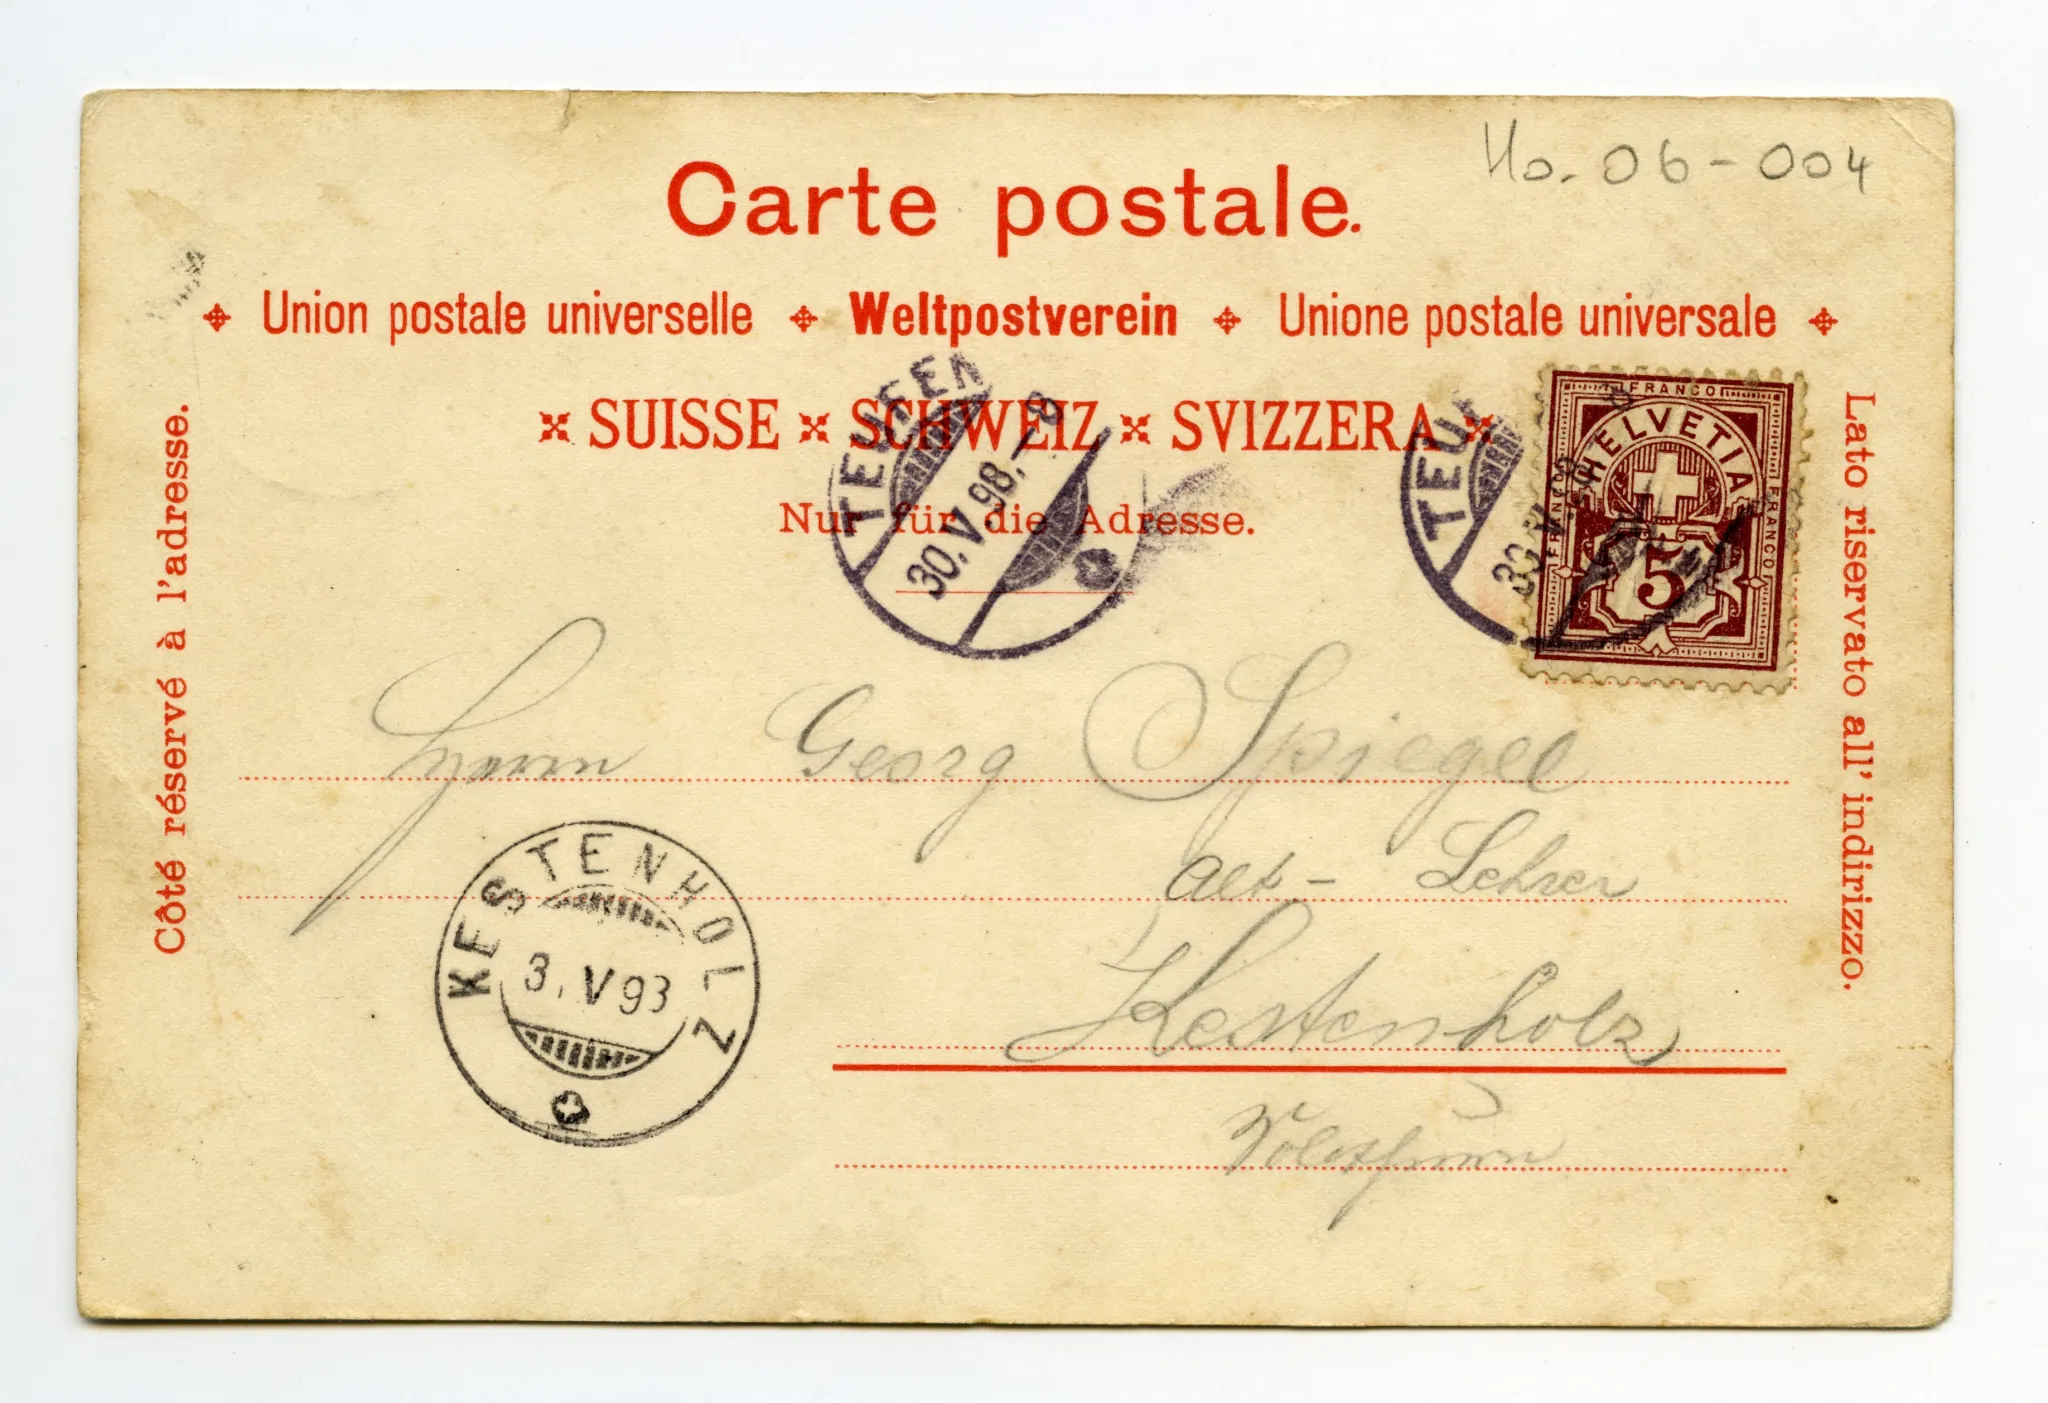 Ho. 06-004
Carte postale.
Union postale universelle Weltpostverein Unione postale universale
SUISSE SCHWEIZ SVIZZERA
Nur für die Adresse.
Côté réservé à l'adresse.
Lato riservato all' indirizzo.
TEUFEN
30.V.98.—8
TEUF
30.V.98.—8
FRANCO
HELVETIA
FRANCO
FRANCO
5
Herrn Georg Spiegel
alt-Lehrer
Kestenholz
KESTENHOLZ
3.V93